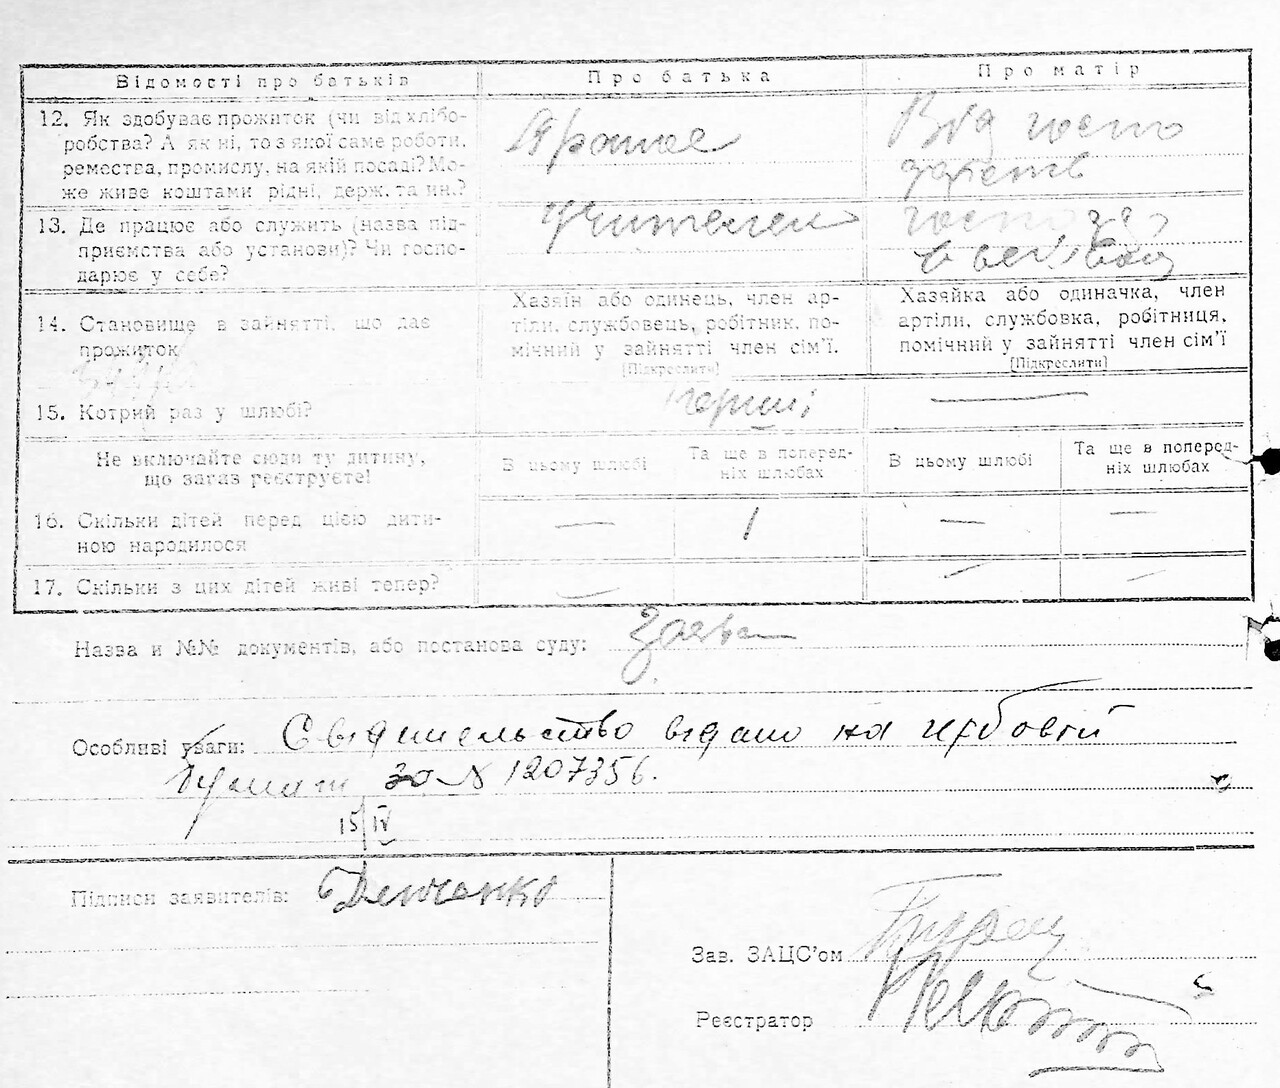 Відомості про батьків
Про батька
Про матір
12. Як здобуває прожиток (чи від хлібо-
робства? А як ні, то з якої саме роботи,
ремества, промислу, на якій посаді? Мо-
же живе коштами рідні, держ. та ин.?
Від
13. Де працює або служить (назва під-
приємства або установи)? Чи госпо-
дарює у себе?
Учителем
14. Становище в зайнятті, що дає
прожиток
Хазяїн або одинець, член ар-
тілі, службовець, робітник, по-
мічний у зайнятті член сім'ї.
[Підкреслити]
Хазяйка або одиначка, член
артілі, службовка, робітниця,
помічний у зайнятті член сім'ї
[Підкреслити]
15. Котрий раз у шлюбі?
—
Не включайте сюди ту дитину,
що зараз реєструєте!
В цьому шлюбі
Та ще в поперед-
ніх шлюбах
В цьому шлюбі
Та ще в поперед-
ніх шлюбах
16. Скільки дітей перед цією дити-
ною народилося
— 1 — —
17. Скільки з цих дітей живі тепер?
— — —
Назва и №№ документів, або постанова суду:
Особливі уваги: Свідительство видано на гербовій
бумазі за № 1207356.
15/IV
Підписи заявителів:
Зав. ЗАЦС'ом
Реєстратор